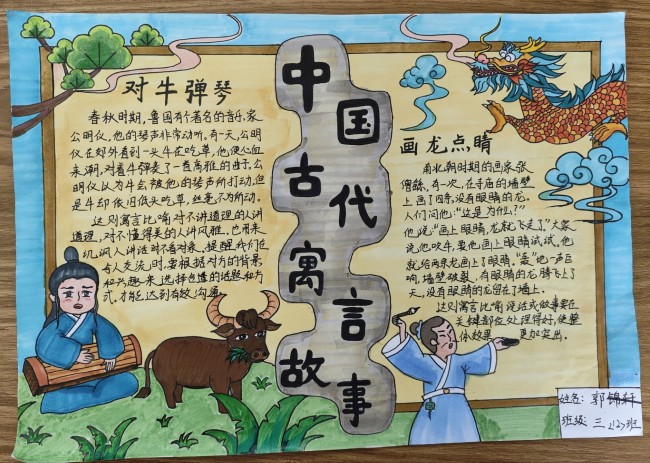 对牛弹琴
春秋时期,鲁国有个著名的音乐家
公明仪。他的琴声非常动听。有一天,公明
仪在郊外看到一头牛在吃草,他便心血
来潮,对着牛弹奏了一直高雅的曲子。公
明仪以为牛会被他的琴声所打动,但
是牛却依旧低头吃草,丝毫不为所动。
这则寓言比喻对不讲道理的人讲
道理,对不懂得美的人讲风雅。也用来
讥讽人讲话时不看对象。提醒我们在
与人交流时,要根据对方的背景
和兴趣来选择合适的话题和方
式,才能达到有效沟通。
中国古代寓言故事
画龙点睛
南北朝时期的画家张
僧繇,有一次,在寺庙的墙壁
上画了四条没有眼睛的龙。
人们问他:“这是为什么?”
他说:“画上眼睛,龙就飞走了。”大家
说他吹牛,要他画上眼睛试试。他
就给两条龙画上了眼睛。“轰”地一声巨
响,墙壁破裂,有眼睛的龙腾飞上了
天,没有眼睛的龙留在了墙上。
这则寓言比喻说话或做事要在
关键部位处理得好,使整
体效果更加突出。
姓名:郭锦轩
班级:三(2)班